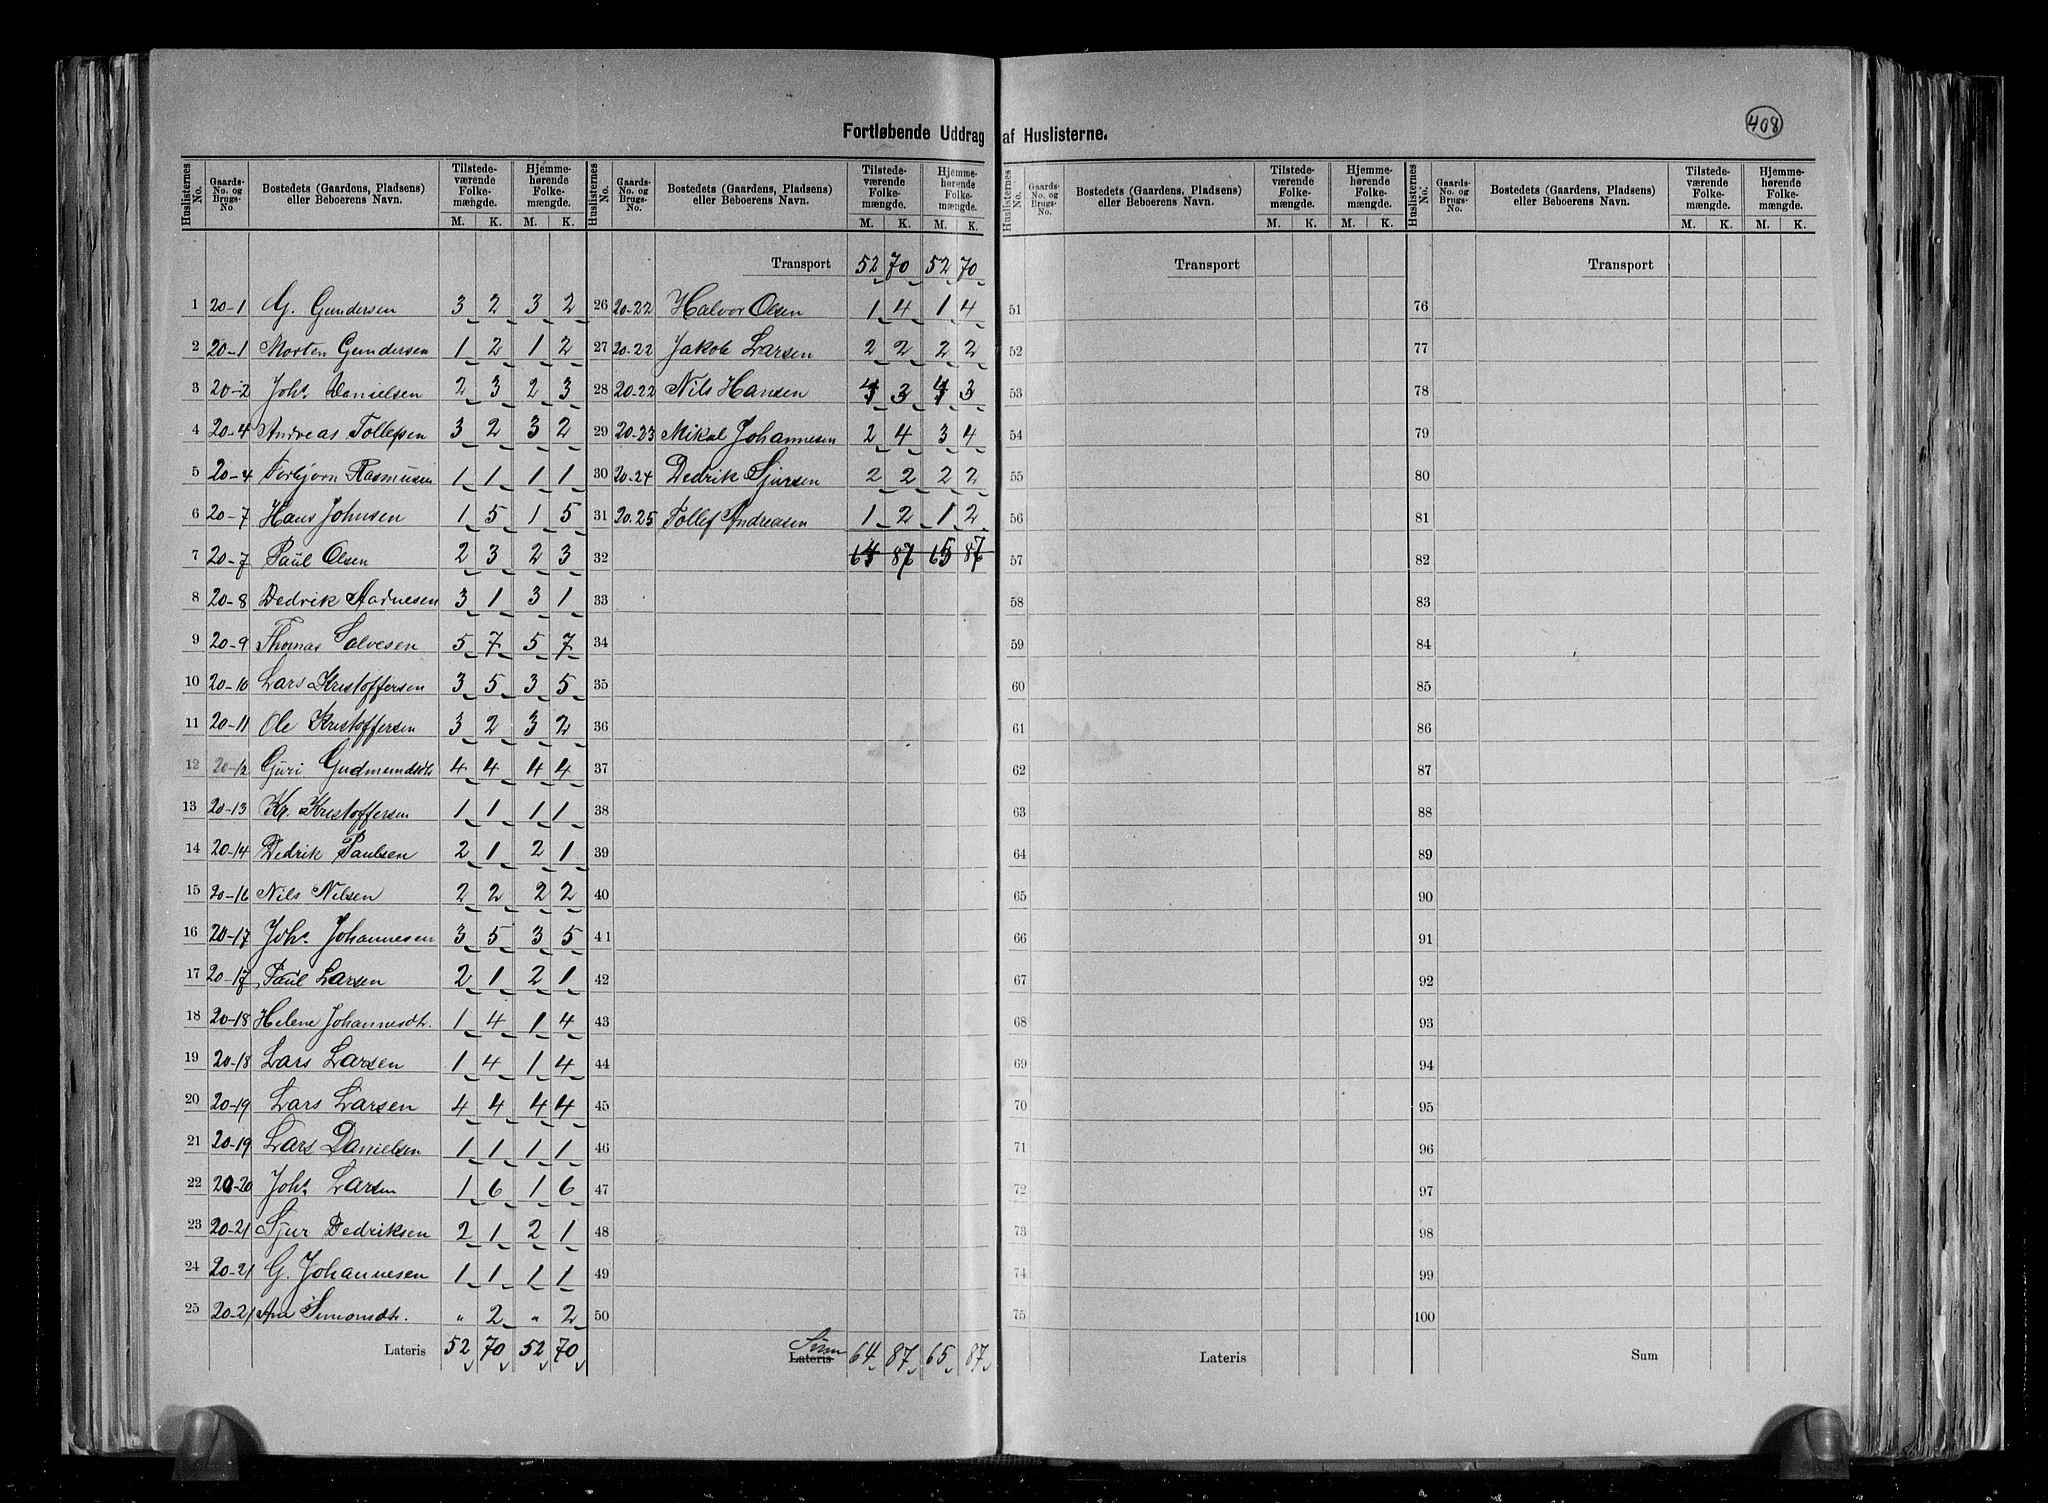 408
Fortløbende Uddrag af Huslisterne.
Huslisternes No. | Gaards-No. og Brugs-No. | Bostedets (Gaardens, Pladsens) eller Beboerens Navn. | Tilstedeværende Folkemængde. M. K. | Hjemmehørende Folkemængde. M. K.
1 20-1 G. Gundersen 3 2 3 2
2 20-1 Morten Gundersen 1 2 1 2
3 20-2 Johs. Danielsen 2 3 2 3
4 20-4 Andreas Tollefsen 3 2 3 2
5 20-4 Torbjørn Rasmussen 1 1 1 1
6 20-7 Hans Johnsen 1 5 1 5
7 20-7 Paul Olsen 2 3 2 3
8 20-8 Dedrik Aadnesen 3 1 3 1
9 20-9 Thomas Salvesen 5 7 5 7
10 20-10 Lars Kristoffersen 3 5 3 5
11 20-11 Ole Kristoffersen 3 2 3 2
12 20-12 Guri Gudmundsdtr 4 4 4 4
13 20-13 Kr. Kristoffersen 1 1 1 1
14 20-14 Dedrik Paulsen 2 1 2 1
15 20-16 Nils Nilsen 2 2 2 2
16 20-17 Johs. Johannesen 3 5 3 5
17 20-17 Paul Larsen 2 1 2 1
18 20-18 Helene Johannesdtr. 1 4 1 4
19 20-18 Lars Larsen 1 4 1 4
20 20-19 Lars Larsen 4 4 4 4
21 20-19 Lars Danielsen 1 1 1 1
22 20-20 Johs. Larsen 1 6 1 6
23 20-21 Sjur Dedriksen 2 1 2 1
24 20-21 G. Johannesen 1 1 1 1
25 20-21 Ana Simonsdtr. " 2 " 2
Lateris 52 70 52 70
Huslisternes No. | Gaards-No. og Brugs-No. | Bostedets (Gaardens, Pladsens) eller Beboerens Navn. | Tilstedeværende Folkemængde. M. K. | Hjemmehørende Folkemængde. M. K.
Transport 52 70 52 70
26 20-22 Halvor Olsen 1 4 1 4
27 20-22 Jakob Larsen 2 2 2 2
28 20-22 Nils Hansen 4 3 4 3
29 20-23 Mikal Johannesen 2 4 3 4
30 20-24 Dedrik Sjursen 2 2 2 2
31 20-25 Tollef Andreasen 1 2 1 2
32 64 87 65 87
33
34
35
36
37
38
39
40
41
42
43
44
45
46
47
48
49
50
Lateris Sum 64 87 65 87
Huslisternes No. | Gaards-No. og Brugs-No. | Bostedets (Gaardens, Pladsens) eller Beboerens Navn. | Tilstedeværende Folkemængde. M. K. | Hjemmehørende Folkemængde. M. K.
Transport
51
52
53
54
55
56
57
58
59
60
61
62
63
64
65
66
67
68
69
70
71
72
73
74
75
Lateris
Huslisternes No. | Gaards-No. og Brugs-No. | Bostedets (Gaardens, Pladsens) eller Beboerens Navn. | Tilstedeværende Folkemængde. M. K. | Hjemmehørende Folkemængde. M. K.
Transport
76
77
78
79
80
81
82
83
84
85
86
87
88
89
90
91
92
93
94
95
96
97
98
99
100
Sum